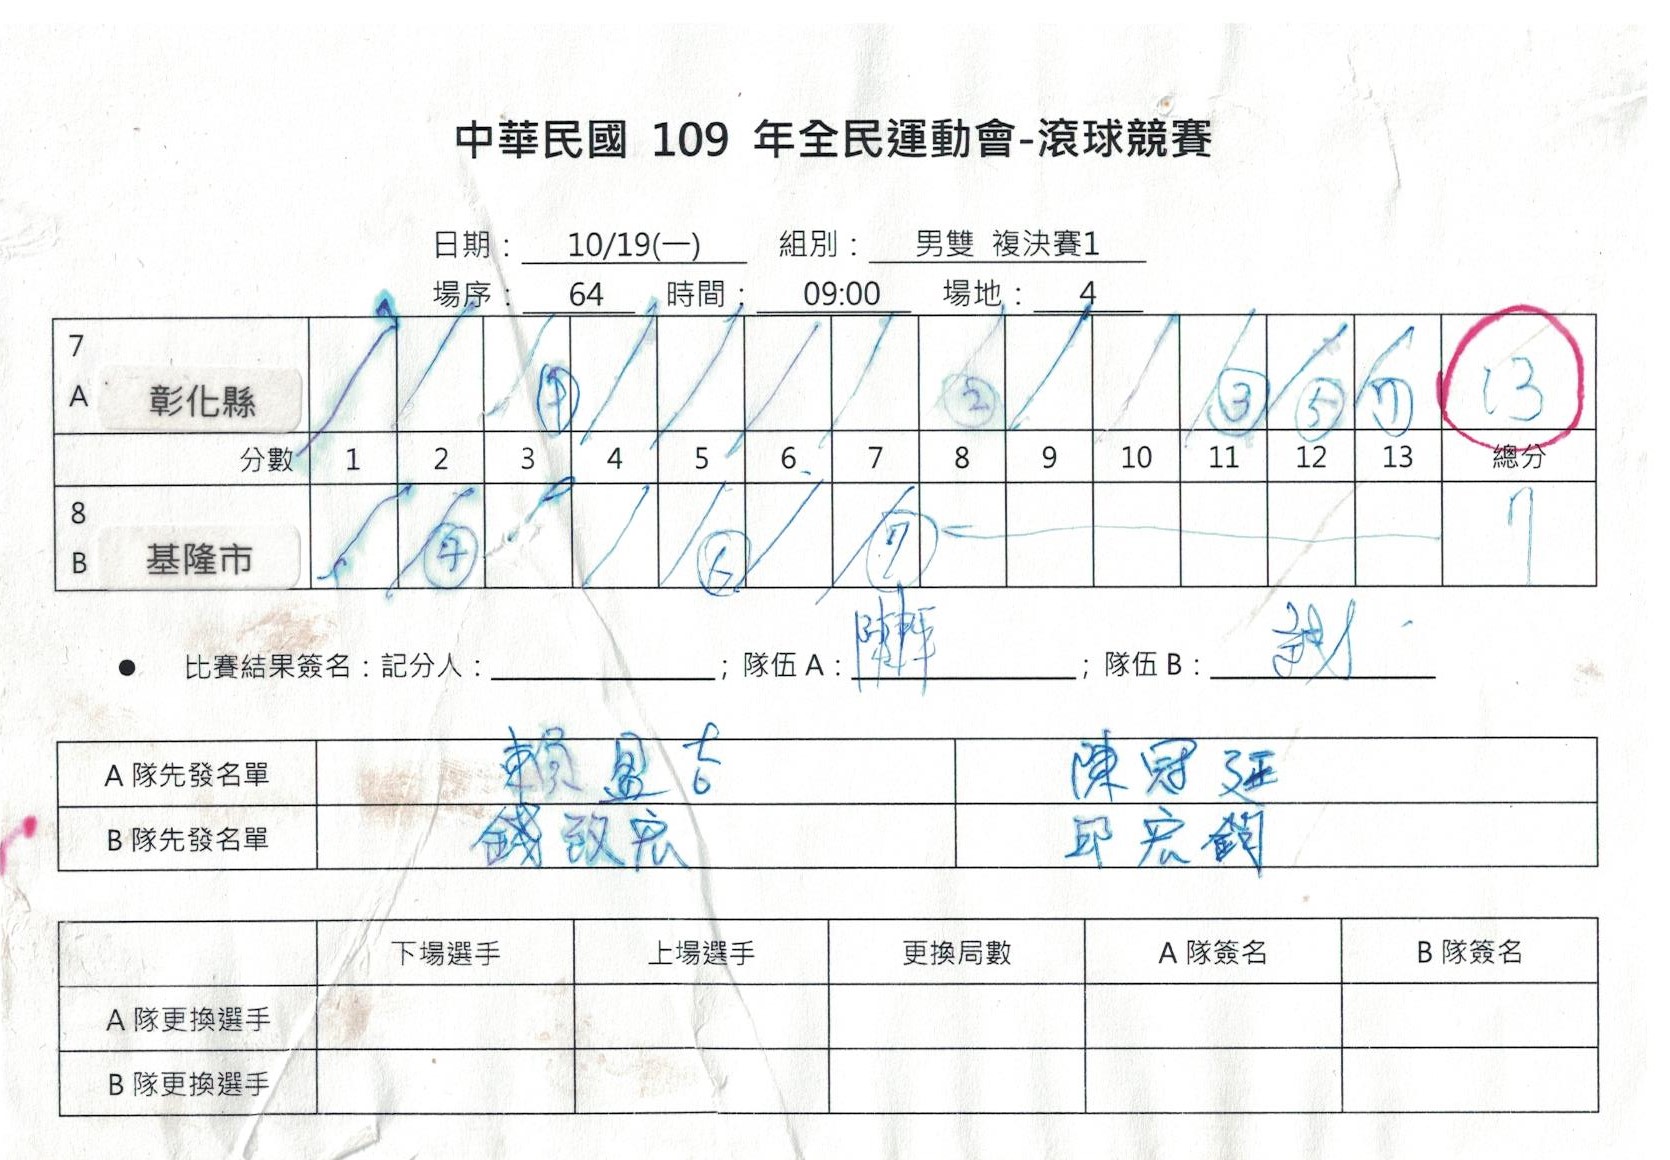 中華民國 109 年全民運動會-滾球競賽
日期： 10/19(一) 組別： 男雙 複決賽1
場序： 64 時間： 09:00 場地： 4
7
A 彰化縣 ② ③ ⑤ 13
分數 1 2 3 4 5 6 7 8 9 10 11 12 13 總分
8
B 基隆市 ⑥ ⑦ 7
● 比賽結果簽名：記分人： ；隊伍 A： ；隊伍 B：
A 隊先發名單 賴盈吉 陳冠廷
B 隊先發名單 錢致宏 邱宏鈞
下場選手 上場選手 更換局數 A 隊簽名 B 隊簽名
A 隊更換選手
B 隊更換選手